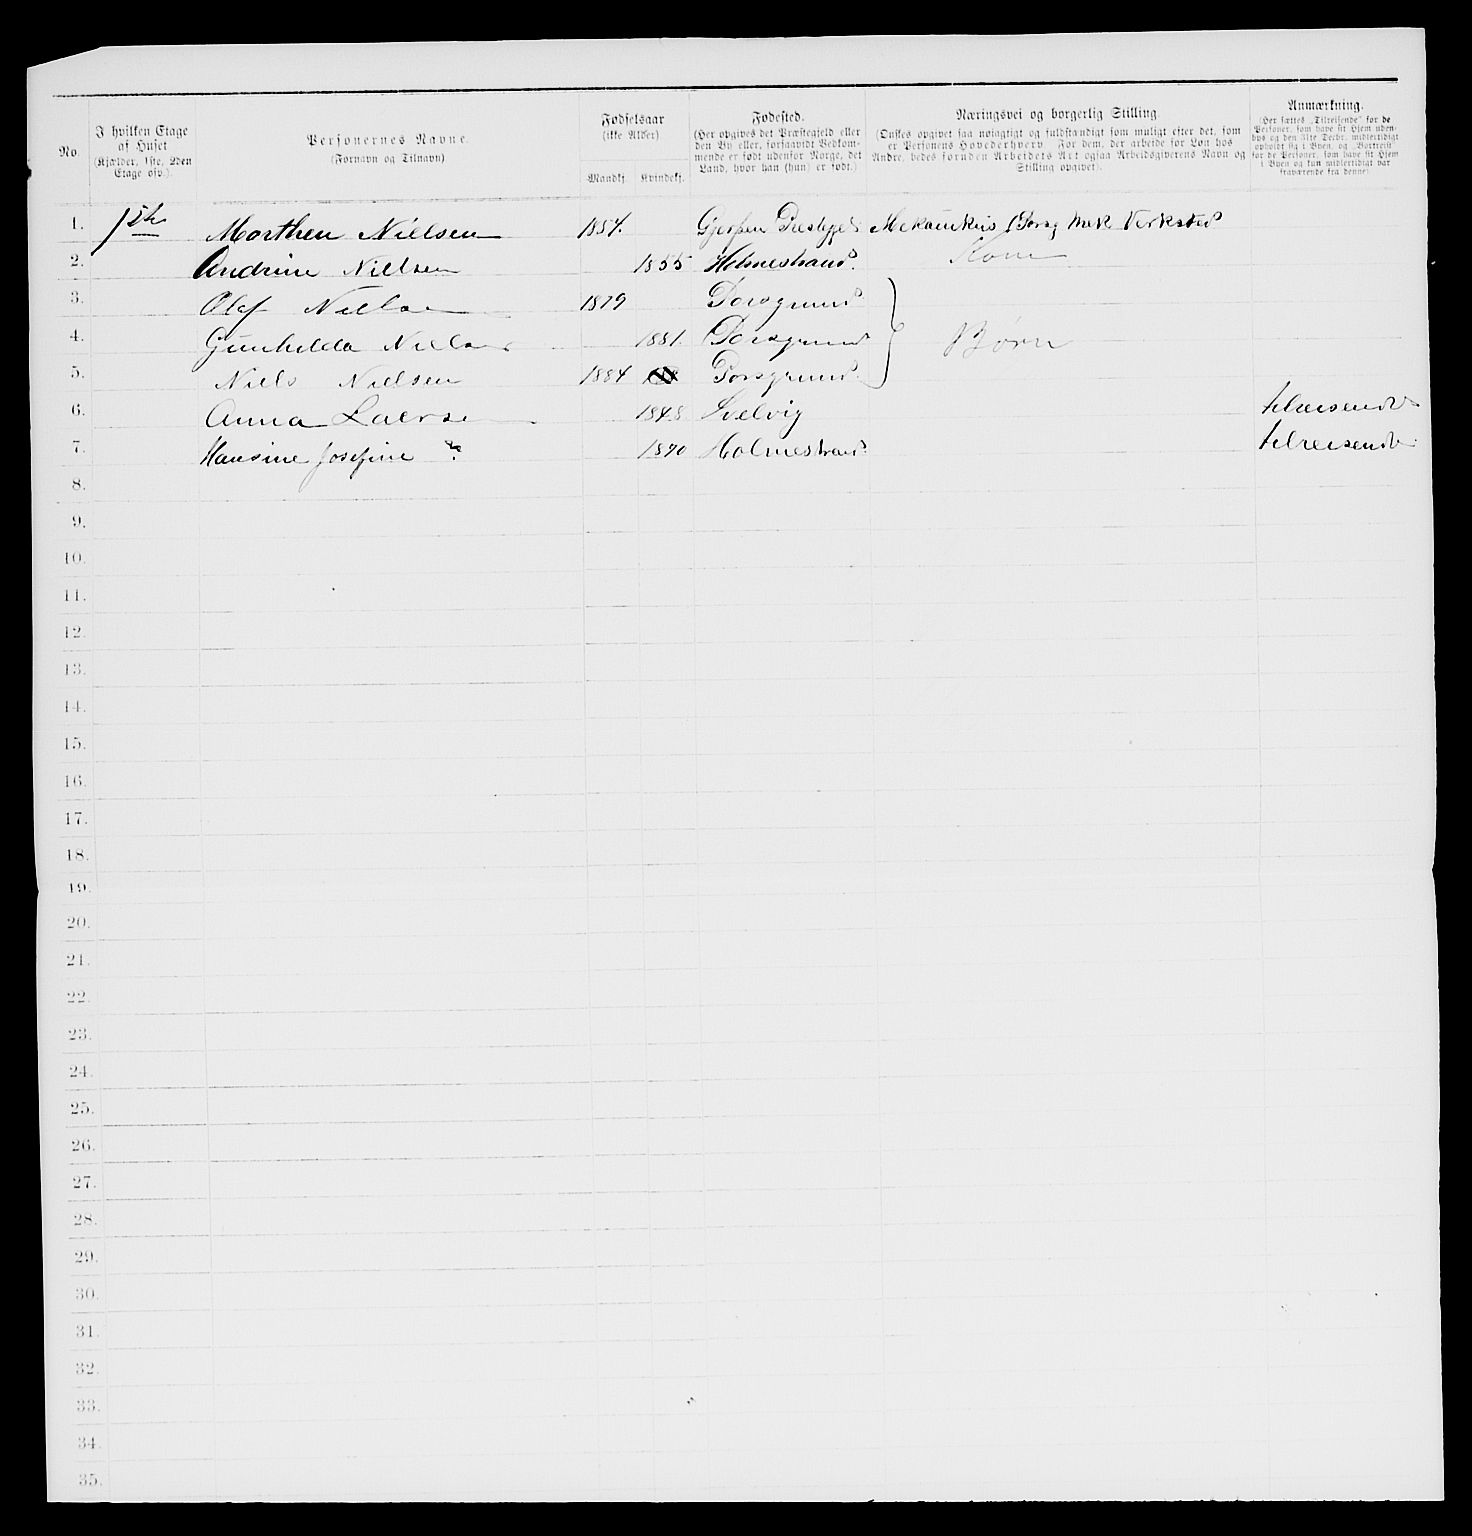 No.
I hvilken Etage af Huset (Kjælder, 1ste, 2den Etage osv.).
Personernes Navne.
(Fornavn og Tilnavn).
Fødselsaar
(ikke Alder)
Mandkj. Kvindekj.
Fødested.
(Her opgives det Præstegjeld eller den By eller, forsaavidt Vedkommende er født udenfor Norge, det Land, hvor han (hun) er født.)
Næringsvei og borgerlig Stilling.
(Ønskes opgivet saa nøiagtigt og fuldstændigt som muligt efter det, som er Personens Hovederhverv. For dem, der arbeide for Løn hos Andre, bedes foruden Arbeidets Art ogsaa Arbeidsgiverens Navn og Stilling opgivet).
Anmærkning.
(Her sættes „Tilreisende" for de Personer, som have sit Hjem udenbys og den 31te Decbr. midlertidigt opholdt sig i Byen, og „Bortreist" for de Personer, som have sit Hjem i Byen og kun midlertidigt var fraværende fra denne)
1. 1ste Morthen Nielsen 1854. Gjerpen Prestegjeld Mekanikus Porsg Mek Verksted
2. Andrine Nielsen 1855 Holmestrand. Kone
3. Olaf Nielsen 1879 Porsgrund
4. Gunhilda Nielsen 1881. Porsgrund Børn
5. Niels Nielsen 1884 Porsgrund.
6. Anna Laersen 1848 Svelvig tilreisende
7. Hansine Josefine ? 1870 Holmestrand tilreisende
8.
9.
10.
11.
12.
13.
14.
15.
16.
17.
18.
19.
20.
21.
22.
23.
24.
25.
26.
27.
28.
29.
30.
31.
32.
33.
34.
35.